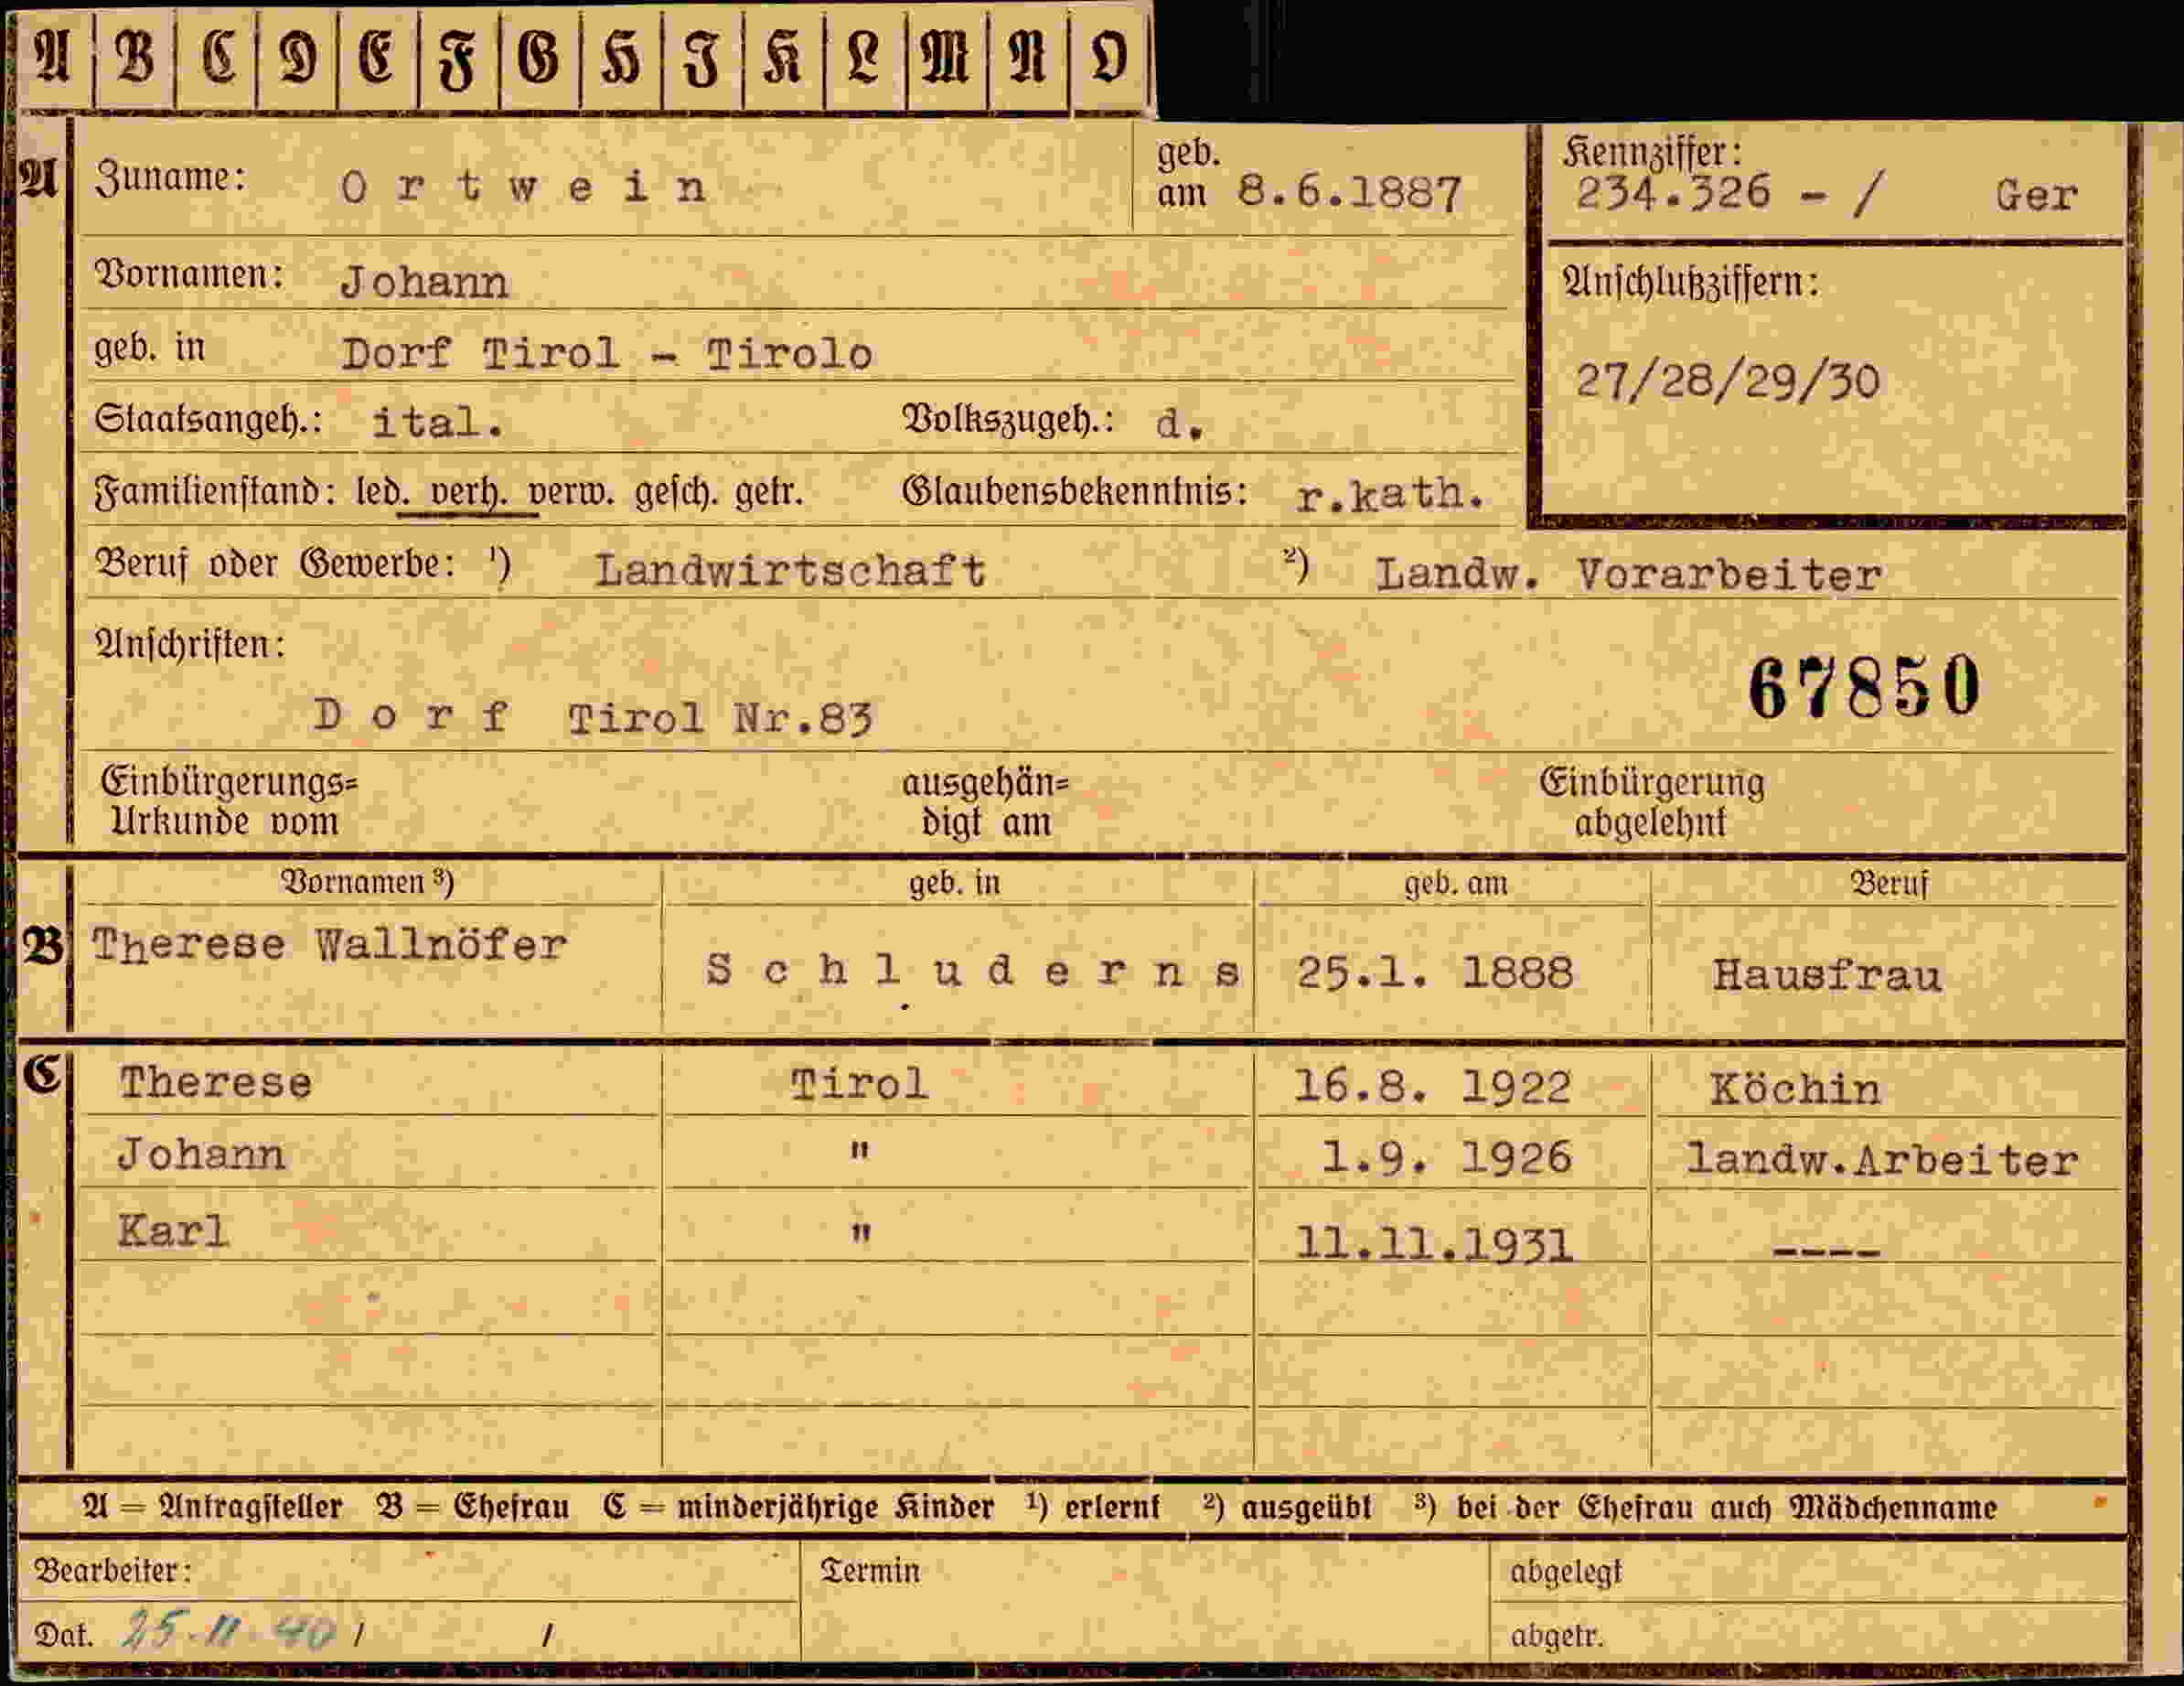 A B C D E F G H I K L M N O
A Zuname: Ortwein geb. am 8.6.1887 Kennziffer: 234.326 - / Ger
Vornamen: Johann Anschlußziffern:
geb. in Dorf Tirol - Tirolo 27/28/29/30
Staatsangeh.: ital. Volkszugeh.: d.
Familienstand: led. verh. verw. gesch. getr. Glaubensbekenntnis: r.kath.
Beruf oder Gewerbe: 1) Landwirtschaft 2) Landw. Vorarbeiter
Anschriften:
67850
Dorf Tirol Nr.83
Einbürgerungs= ausgehän= Einbürgerung
Urkunde vom digt am abgelehnt
Vornamen 3) geb. in geb. am Beruf
B Therese Wallnöfer Schluderns 25.1. 1888 Hausfrau
C Therese Tirol 16.8. 1922 Köchin
Johann " 1.9. 1926 landw.Arbeiter
Karl " 11.11.1931 ----
A = Antragsteller B = Ehefrau C = minderjährige Kinder 1) erlernt 2) ausgeübt 3) bei der Ehefrau auch Mädchenname
Bearbeiter: Termin abgelegt
Dat. 25.11.40 / / abgetr.